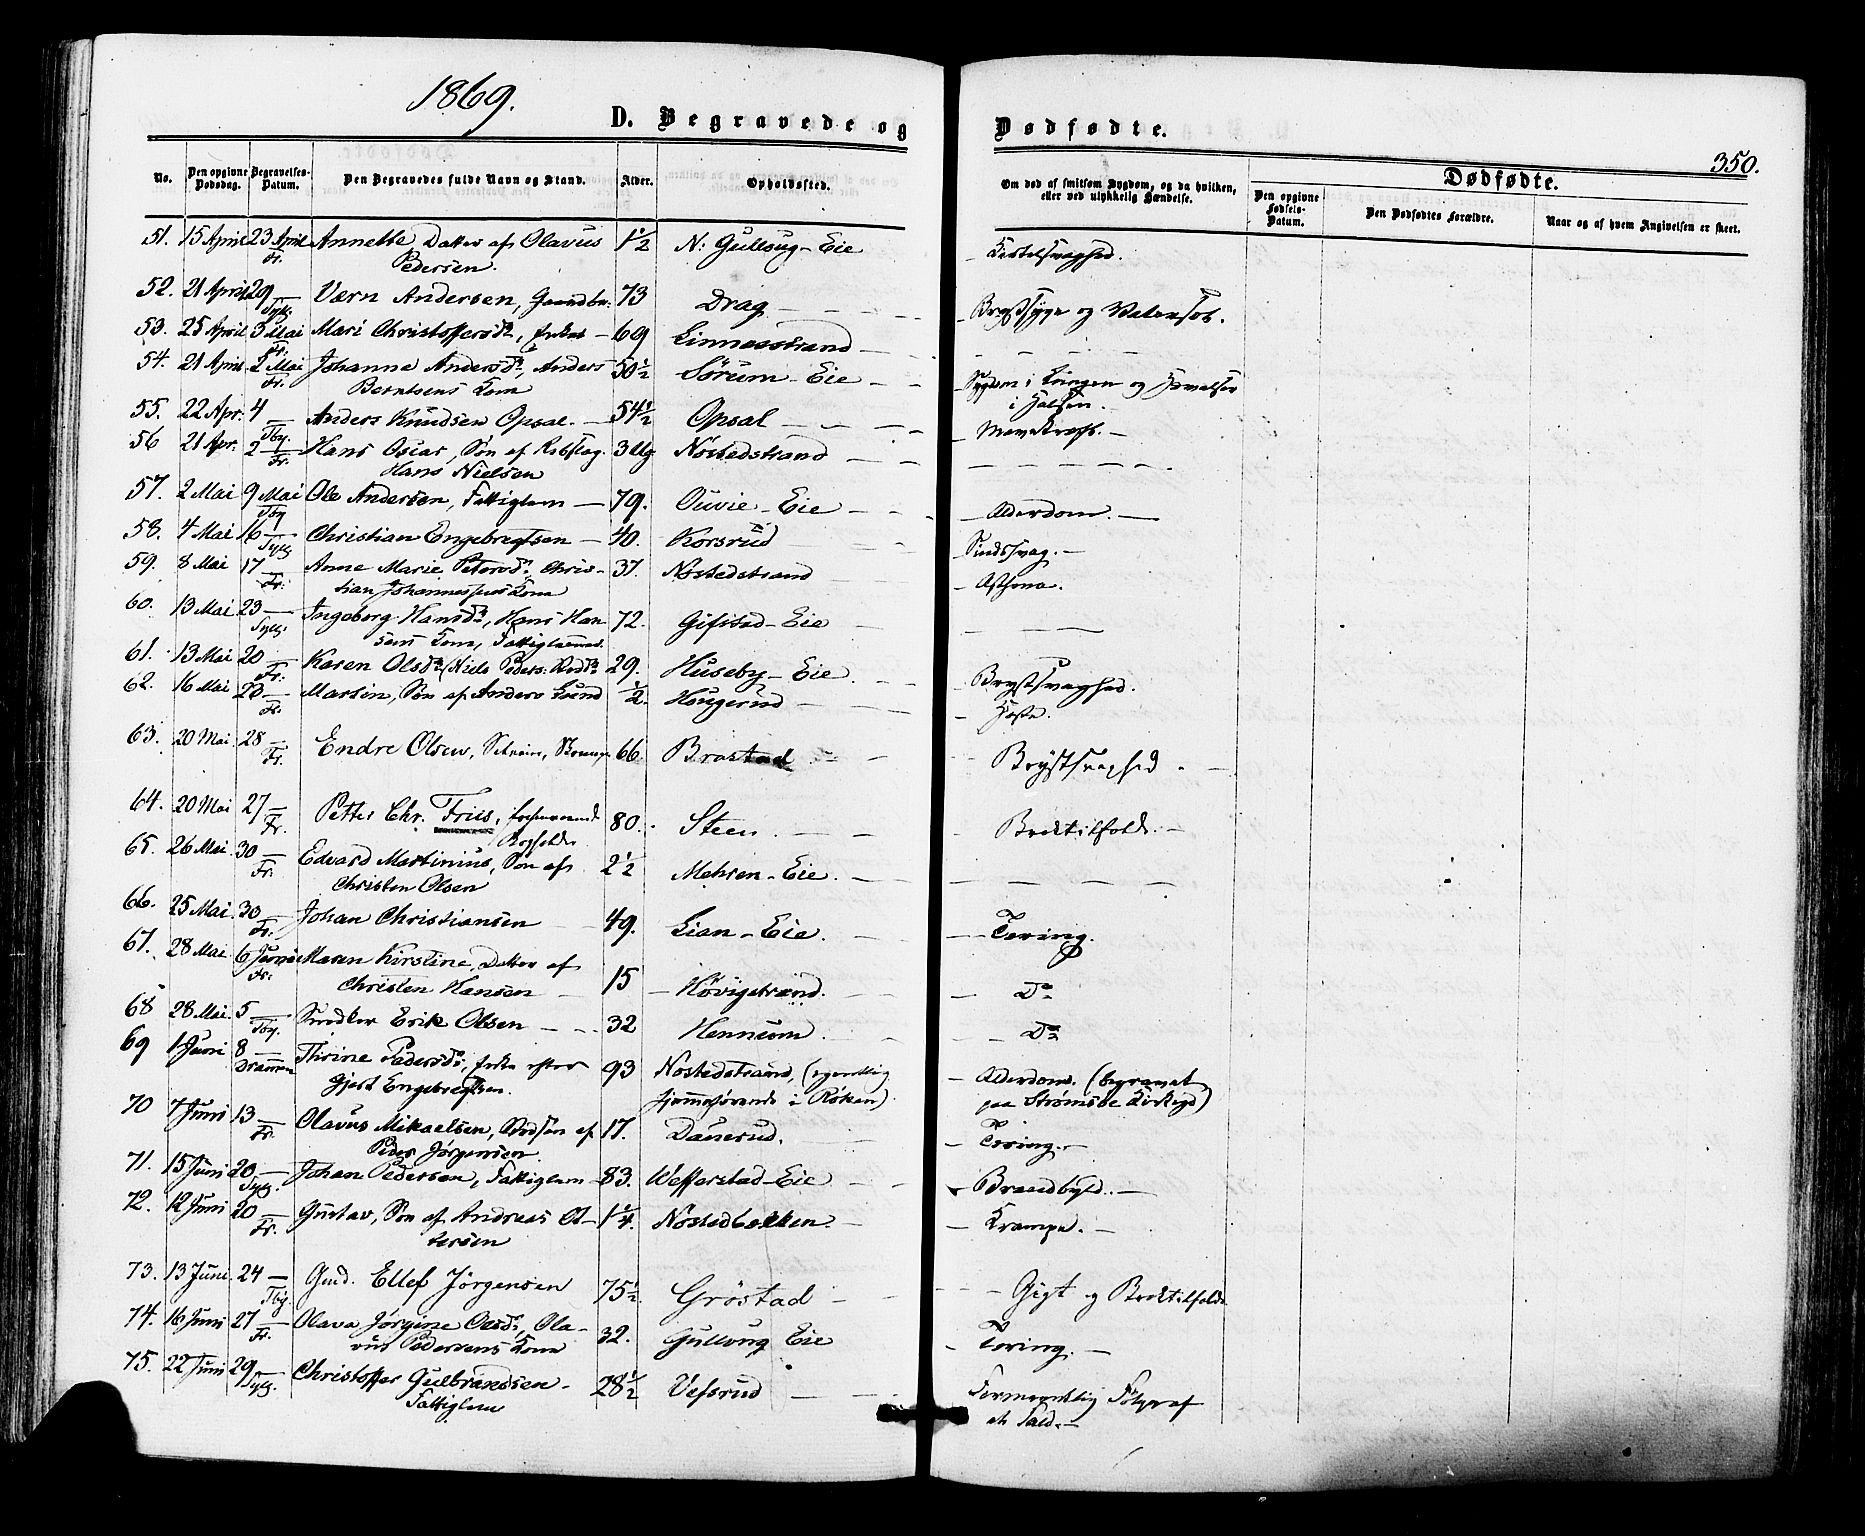 1869.
D. Begravede og Dødfødte.
350.
No. Den opgivne Dødsdag. Begravelses-Datum. Den Begravedes fulde Navn og Stand. Alder. Opholdssted. Om død af smitsom Sygdom, og da hvilken, eller ved ulykkelig Hændelse. Dødfødte.
Den opgivne Fødsels-Datum. Den Dødfødtes Forældre. Naar og af hvem Angivelsen er skeet.
51. 15 April 23 April Fr. Annette, Datter af Olavus Pedersen. 1 1/2 N: Gullaug-Eie Kirtelsvaghed.
52. 21 April 29 Sylg. Værn Andersen, Gaardbr. 73 Drag Brystsyge og Vatersot.
53. 25 April 3 Mai Fr. Mari Christoffersdr, Enke 69 Linnesstrand
54. 21 April 2 Mai Fr. Johanne Andersdr, Anders Berntsens Kone 50 1/2 Sørum-Eie Sygdom i Lungen og Hævelse i Halsen.
55. 22 Apr. 4 Tby. Anders Knudsen Opsal. 54 1/2 Opsal Mavekræft.
56 21 Apr. 2 Fr. Hans Oscar, Søn af Rebslag. Hans Nielsen 3 Ug Nøstedstrand
57. 2 Mai 9 Mai Tby Ole Andersen, Fattiglem 79. Ouvie-Eie Alderdom.
58. 4 Mai 16 Sylg Christian Engebregtsen 40. Korsrud Sindssvag.
59. 8 Mai 17 Fr. Anne Marie Petersdr. Christian Johannessens Kone 37. Nøstedstrand Asthma.
60. 13 Mai 23 Sylg. Ingeborg Hansdr, Hans Hansens Kone, Fattiglemmed. 72. Gifstad-Eie
61. 13 Mai 20 Fr. Karen Olsdr (Niels Peders: Stedsdr 29. Huseby-Eie Brystsvaghed.
62. 16 Mai 23 Fr. Martin, Søn af Anders Lund 1/2. Hougerud Hoste.
63. 20 Mai 28 Fr. Endre Olsen, 66 Brastad Brystsvaghed.
64. 20 Mai 27 Fr. Petter Chr. Fries, forhenværende Bogholder 80. Steen. Bræktilfælde.
65. 26 Mai 30 Fr. Edvard Martinius, Søn af Christen Olsen 2 1/2 Mehren-Eie.
66. 25 Mai 30 Fr. Johan Christiansen 49. Lian-Eie. Tæring.
67. 28 Mai 6 Juni Fr. Maren Kirstine, Datter af Christen Hansen 15 Høvigstrand. Do
68 28 Mai. 5 Tby. Snedker Erik Olsen 32 Hennum. Do
69 1 Juni 8 Drammen Thrine Pedersdr, Enke efter Gjert Engebregtsen. 93 Nøstedstrand, (egentlig hjemmehørende i Røken). Alderdom. (begravet paa Strømsøe Kirkegd)
70 7 Juni 13 Fr. Olavus Mikaelsen, Stedsøn af Peder Jørgensen. 17. Danerud. Tæring.
71. 15 Juni 20 Sylg. Johan Pedersen, Fattiglem 83. Wefferstad-Eie Brandbyld.
72. 12 Juni 20 Fr. Gustav, Søn af Andreas Ottersen 1 1/4. Nøstedbakken. Krampe.
73. 13 Juni. 24 Tby. Gmd. Ellef Jørgensen 75 1/2. Grøstad Gigt og Bræktilfælde
74. 16 Juni 27 Fr. Olava Jørgine Olsdr, Olavus Pedersens Kone 32. Gullaug Eie Tæring.
75. 22 Juni 29 Sylg. Christoffer Gulbrandsen Fattiglem 28 1/2 Vefsrud Formeentlig Følge af et Fald.